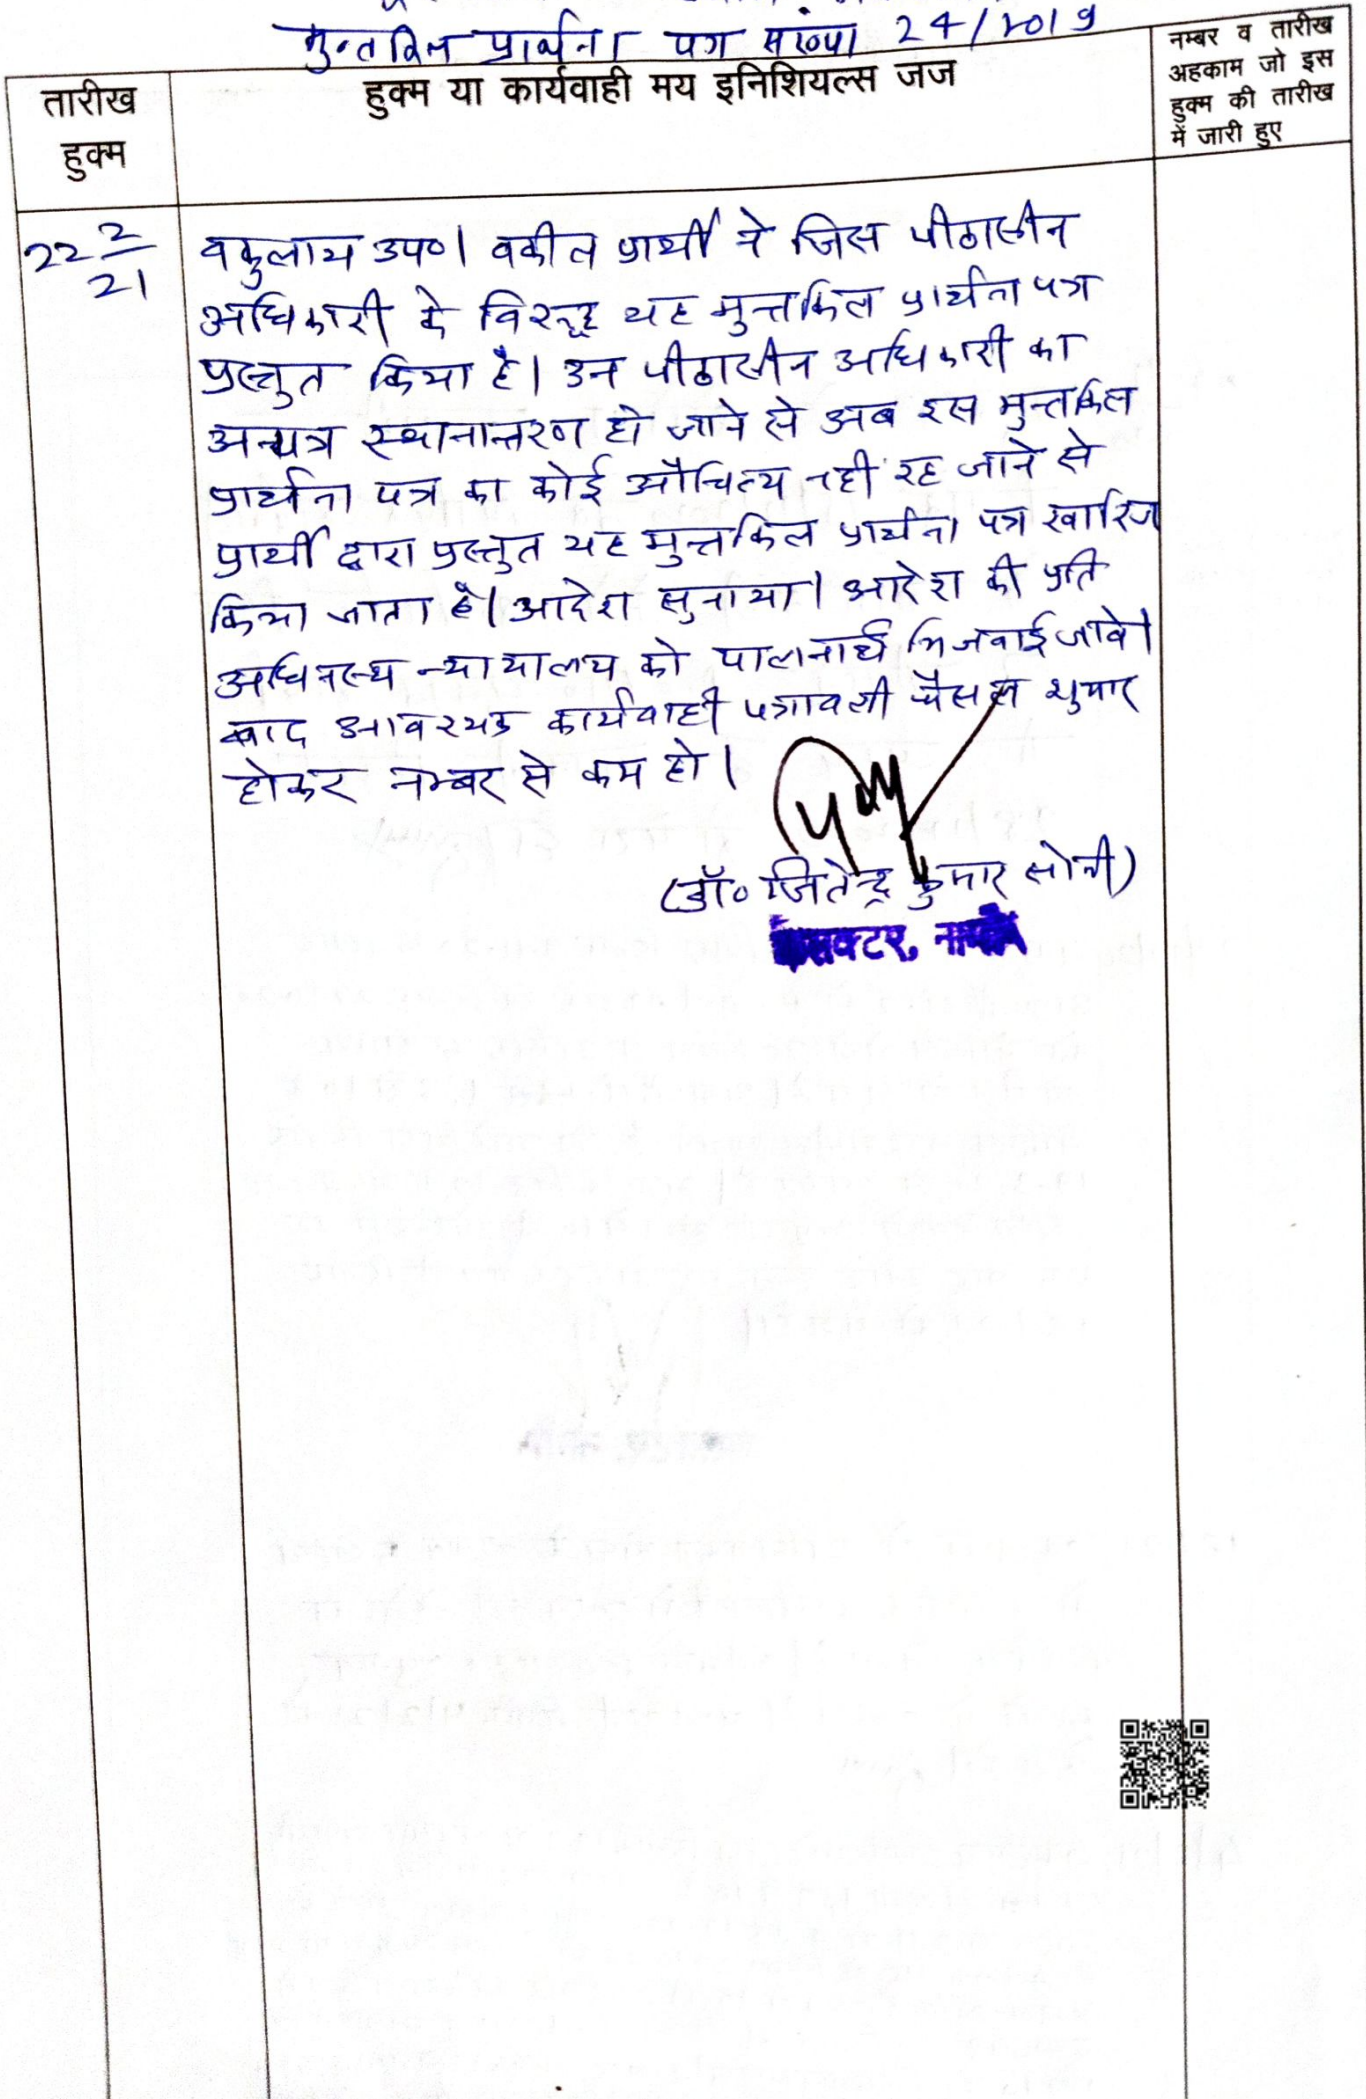 मुन्तकिल प्रार्थना पत्र संख्या 24/2019
तारीख
हुक्म
हुक्म या कार्यवाही मय इनिशियल्स जज
नम्बर व तारीख
अहकाम जो इस
हुक्म की तारीख
में जारी हुए
22 2/21
वकुलाय उप०। वकील प्रार्थी ने जिस पीठासीन
अधिकारी के विरूद्ध यह मुन्तकिल प्रार्थना पत्र
प्रस्तुत किया है। उन पीठासीन अधिकारी का
अन्यत्र स्थानान्तरण हो जाने से अब इस मुन्तकिल
प्रार्थना पत्र का कोई औचित्य नही रह जाने से
प्रार्थी द्वारा प्रस्तुत यह मुन्तकिल प्रार्थना पत्र खारिज
किया जाता है। आदेश सुनाया। आदेश की प्रति
अधिनस्थ न्यायालय को पालनार्थ भिजवाई जावे।
बाद आवश्यक कार्यवाही पत्रावली फैसल शुमार
होकर नम्बर से कम हो।
(डॉ० जितेन्द्र कुमार सोनी)